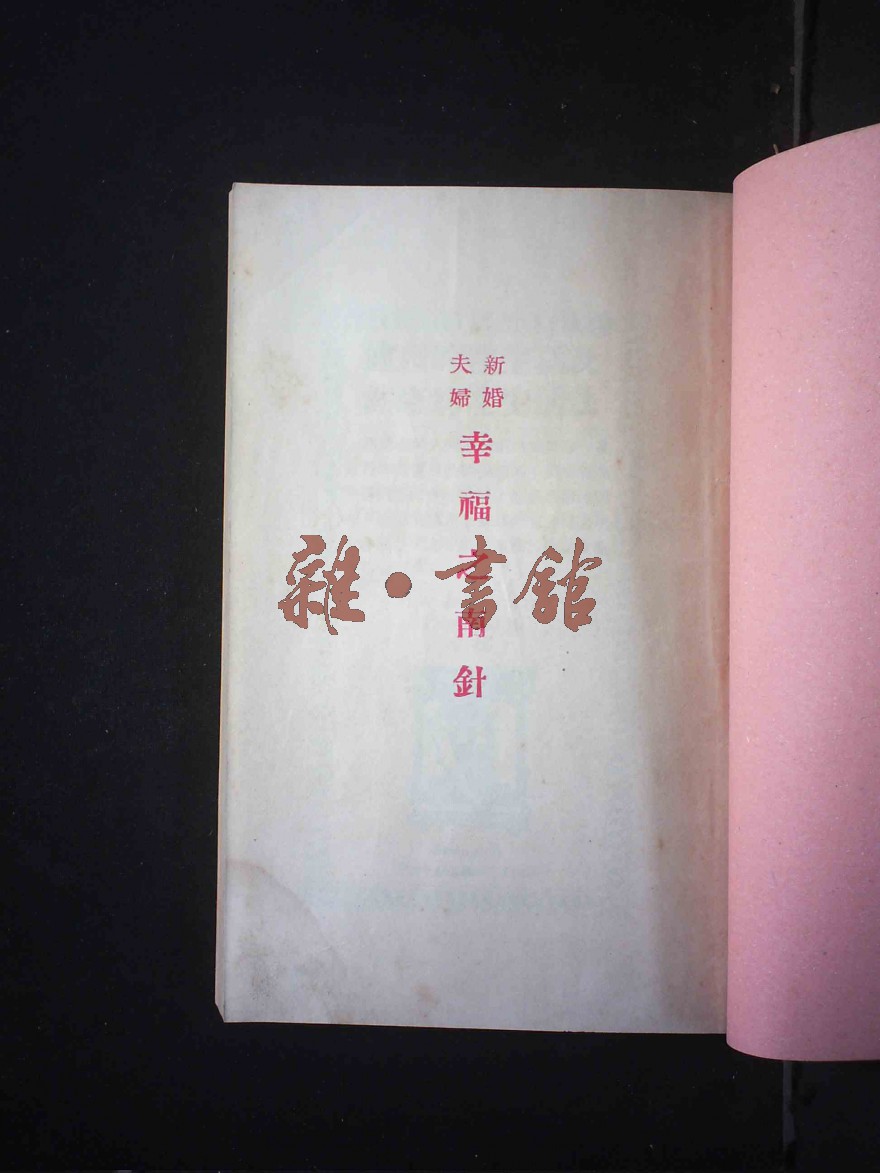 新婚
夫婦
幸福之南針
雜·書館